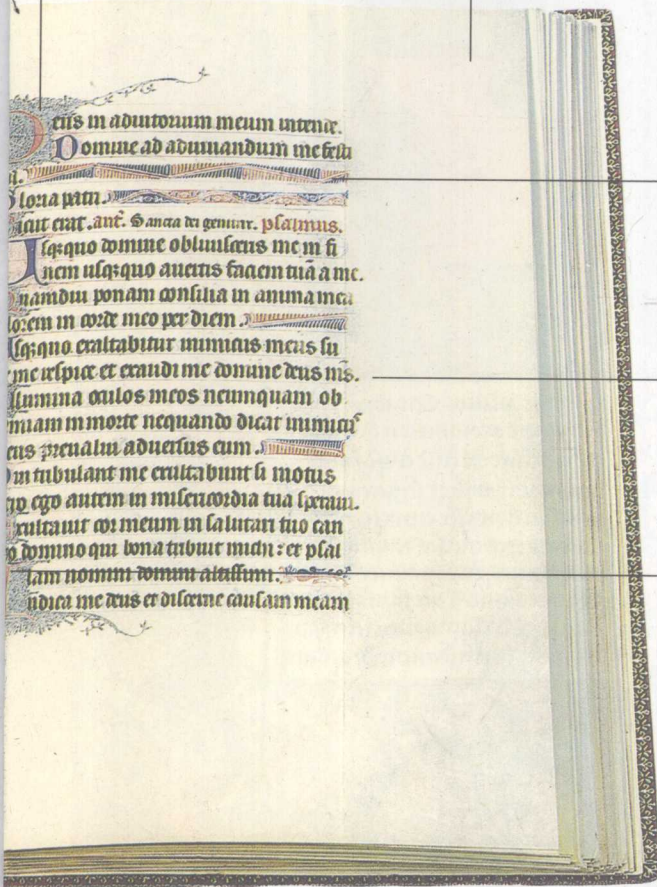 Deus in adiutorium meum intende.
Domine ad adiuuandum me festi
a.
Gloria patri.
Sicut erat. ant̄. Sancta dei genitrix. psalmus.
Usq;quo domine obliuisceris me in fi
nem usq;quo auertis faciem tuā a me.
Quamdiu ponam consilia in anima mea
dolorem in corde meo per diem.
Usq;quo exaltabitur inimicus meus su
me respice et exaudi me domine deus m̄s.
Illumina oculos meos ne umquam ob
dormiam in morte nequando dicat inimicus
meus preualui aduersus eum.
Qui tribulant me exultabunt si motus
ego autem in misericordia tua speraui.
Exultauit cor meum in salutari tuo can
domino qui bona tribuit michi : et psal
lam nomini domini altissimi.
Iudica me deus et discerne causam meam